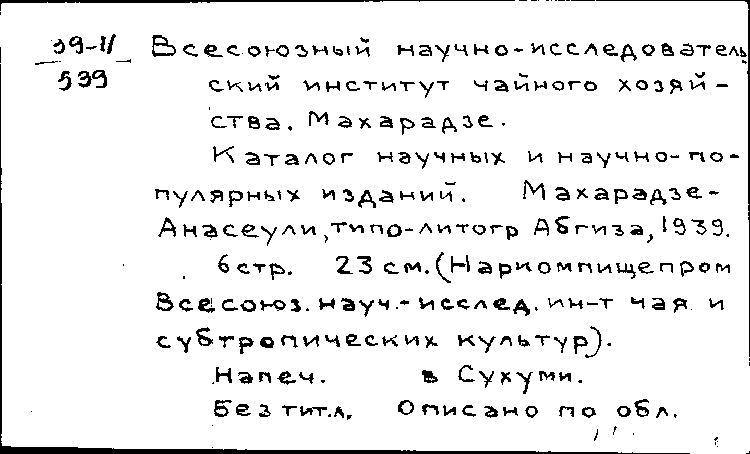 39-II Всесоюзный научно-исследователь
539 ский институт чайного хозяй-
ства. Махарадзе.
Каталог научных и научно-по-
пулярных изданий. Махарадзе-
Анасеули, типо-литогр Абгиза, 1939.
6 стр. 23 см. (Наркомпищепром
Всесоюз. науч.-исслед. ин-т чая и
субтропических культур).
Напеч. в Сухуми.
Без тит.л. Описано по обл.